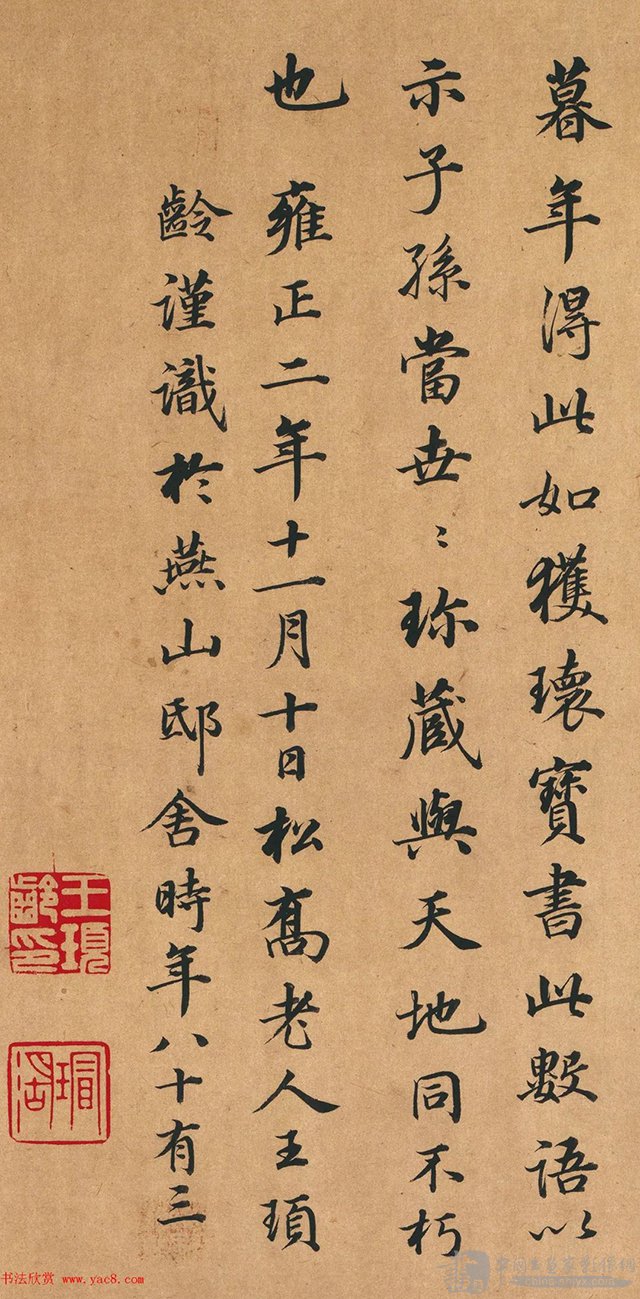 暮年得此如獲瓌寶書此數語以
示子孫當世〻珍藏與天地同不朽
也 雍正二年十一月十日松喬老人王頊
齡謹識於燕山邸舍時年八十有三
王頊齡印
瑁湖
书法欣赏 www.yac8.com